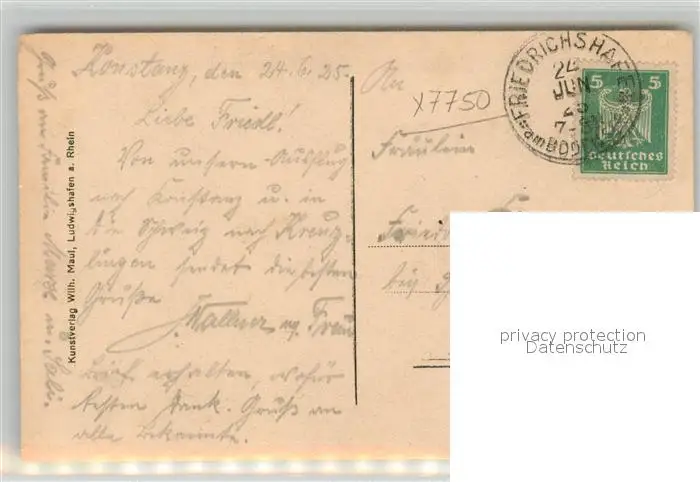 Konstanz, den 24.6.25.
Liebe Friedl!
Von unserm Ausflug
nach Konstanz u. in
die Schweiz nach Kreuz-
lingen sendet die besten
Grüße
Wallner
Brief erhalten, wofür
besten Dank. Gruß an
alle Bekannte.
Gruß an Familie u.
Kunstverlag Wilh. Maul, Ludwigshafen a. Rhein
An
x7750
Fräulein
bei
FRIEDRICHSHAFEN
24
JUN
25
5 5
Deutsches
Reich
privacy protection
Datenschutz